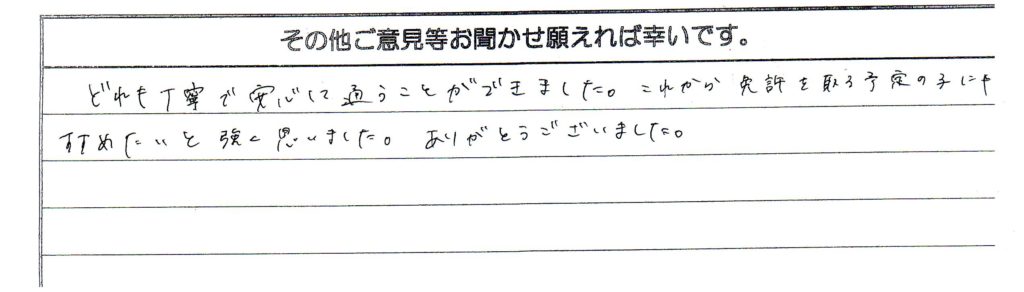 その他ご意見等お聞かせ願えれば幸いです。
どれも丁寧で安心して通うことができました。これから免許を取る予定の子にも
すすめたいと強く思いました。ありがとうございました。